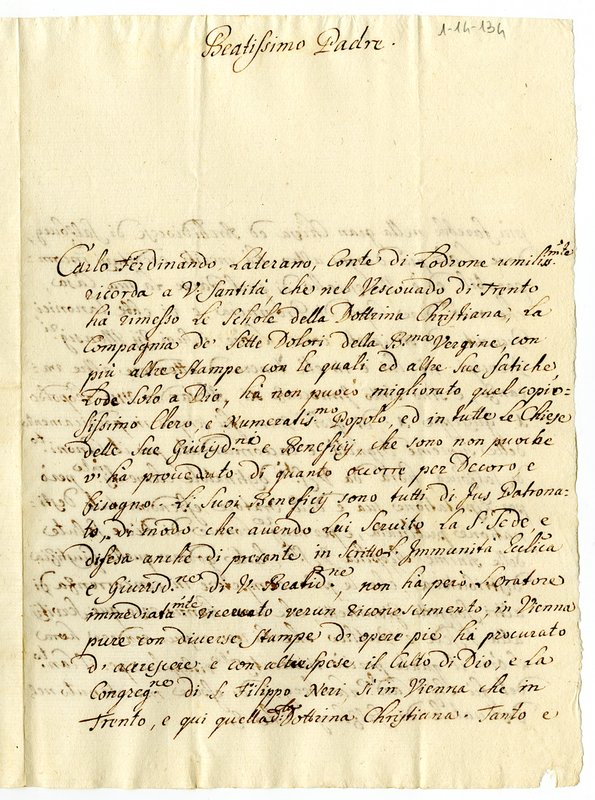 1-14-134
Beatissimo Padre.
Carlo Ferdinando, Laterano, Conte di Lodrone umiliss:mte
ricorda a V. Santità, che nel Vescouado di Trento
ha rimesso le Schole della Dottrina Christiana, La
Compagnia de Sette Dolori della B:ma Vergine, con
più altre stampe con le quali ed altre sue fatiche
Lode Solo a Dio, ha non puoco migliorato quel copio-
sissimo Clero, e Numeratis:mo Popolo, ed in tutte le Chiese
delle Sue Giurisd:ni e Beneficij, che sono non puoche
v'ha proceduto di quanto occorre per Decoro, e
bisogno. Li Suoi Beneficij sono tutti di Jus Patrona-
to, di modo che avendo Lui Seruito La S. Sede, e
difesa anche di presente in Scritto l'Immunità Ecl:ica
e Giurisd:ne di V. Beatid:ne, non ha però l'Oratore
immediata:mte riceuuto verun riconoscimento, in Vienna
pure con diuerse stampe d'opere pie ha procurato
d'accrescere e con altre spese il Culto di Dio, e La
Congreg:ne di S. Filippo Neri, Si in Vienna che in
Trento, e qui quella Dottrina Christiana. Tanto e